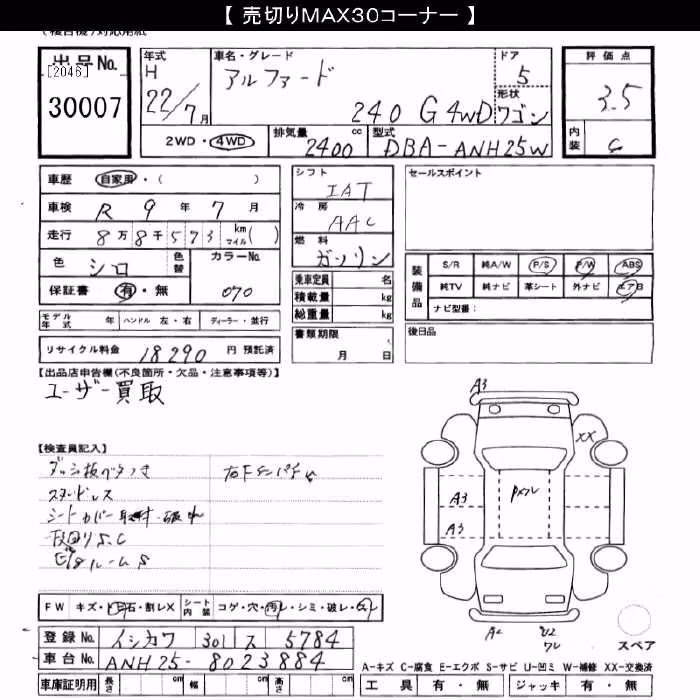 【 売切りMAX30コーナー 】
出品No. [2046] 30007
年式 H 22/7月
車名・グレード アルファード 240 G 4WD
ドア 5
形状 ワゴン
評価点 3.5
内装 C
2WD・4WD
排気量 2400 cc
型式 DBA-ANH25W
車歴 自家用・( )
車検 R 9 年 7 月
走行 8万8千573 km マイル( )
色 シロ 色替 カラーNo. 070
保証書 有・無
モデル年式 年 ハンドル 左・右 ディーラー・並行
リサイクル料金 18290 円 預託済
シフト IAT
冷房 AAC
燃料 ガソリン
乗車定員 名
積載量 kg
総重量 kg
書類期限 月 日
セールスポイント
装備品 S/R 純A/W P/S P/W ABS
純TV 純ナビ 革シート 外ナビ エアB
ナビ型番:
後日品
【出品店申告欄(不良箇所・欠品・注意事項等)】
ユーザー買取
【検査員記入】
スタッドレス
シートカバー
A3
XX
A3
A3
A2 U2
FW キズ・ 石・割レX シート内装 コゲ・穴・汚レ・シミ・破レ・
登録No. イシカワ 301 ス 5784
車台No. ANH25-8023884
スペア
A-キズ C-腐食 E-エクボ S-サビ U-凹ミ W-補修 XX-交換済
車庫証明用 長さ cm 幅 cm 高さ cm
工具 有・無 ジャッキ 有・無